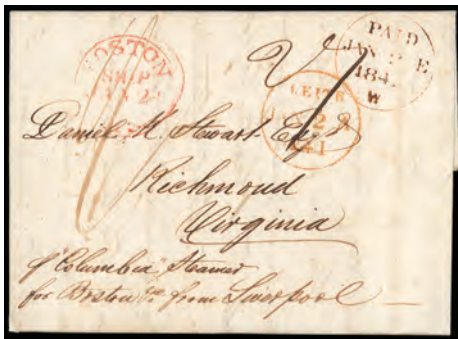 BOSTON
SHIP
JAN 2
PAID
JAN 2 E
184
W
LEITH
JAN 2 R
41
Daniel K. Stewart Esqr
Richmond
Virginia
pr "Columbia" Steamer
for Boston from Liverpool